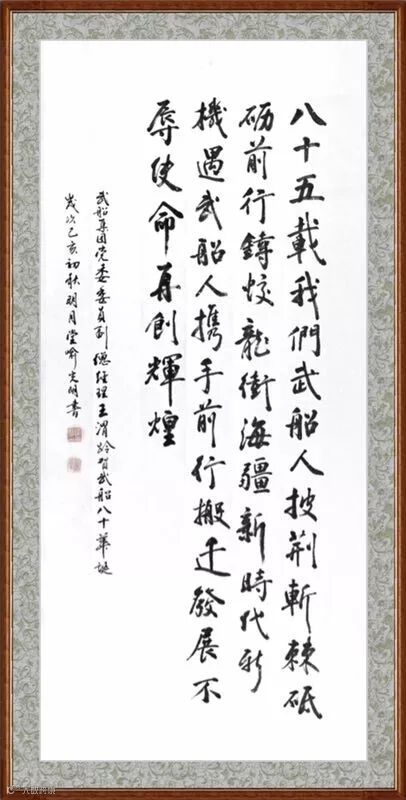 八十五載我們武船人披荆斬棘砥
砺前行鑄蛟龍衛海疆新時代新
機遇武船人携手前行搬迁發展不
辱使命再創輝煌
武船集团党委委員副總经理王渭龄贺武船八十華誕
歲次己亥初秋明月堂喻光明書